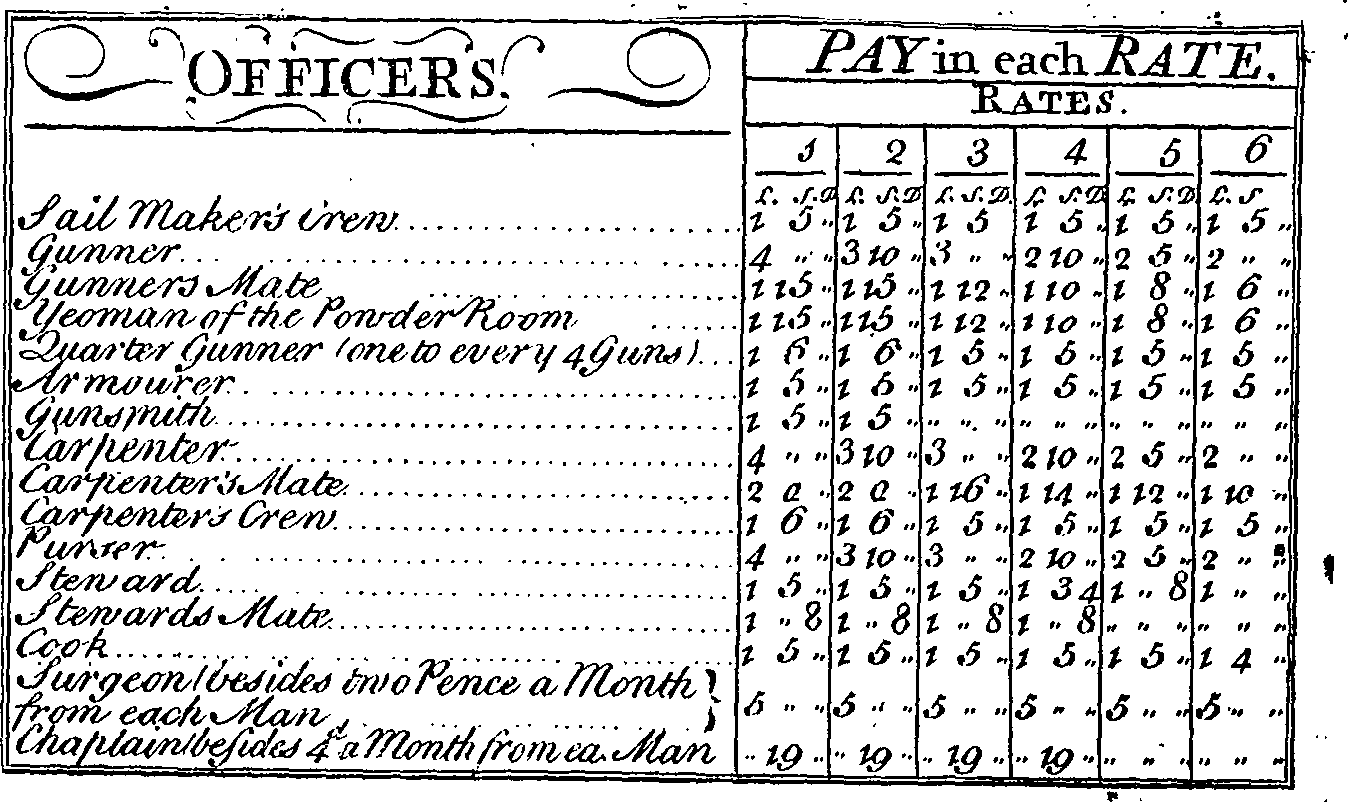 OFFICERS.
PAY in each RATE.
RATES.
1 2 3 4 5 6
£. S. D £. S. D £. S. D. £. S. D £. S. D £. S.
Sail Maker's Crew 1 5 „ 1 5 „ 1 5 1 5 „ 1 5 „ 1 5 „
Gunner 4 „ „ 3 10 „ 3 „ „ 2 10 „ 2 5 „ 2 „ „
Gunners Mate 1 15 „ 1 15 „ 1 12 „ 1 10 „ 1 8 „ 1 6 „
Yeoman of the Powder Room 1 15 „ 1 15 „ 1 12 „ 1 10 „ 1 8 „ 1 6 „
Quarter Gunner (one to every 4 Guns) 1 6 „ 1 6 „ 1 5 „ 1 5 „ 1 5 „ 1 5 „
Armourer 1 5 „ 1 5 „ 1 5 „ 1 5 „ 1 5 „ 1 5 „
Gunsmith 1 5 „ 1 5 „ „ „ „ „ „ „ „ „ „ „ „
Carpenter 4 „ „ 3 10 „ 3 „ „ 2 10 „ 2 5 „ 2 „ „
Carpenter's Mate 2 0 „ 2 0 „ 1 16 „ 1 14 „ 1 12 „ 1 10 „
Carpenter's Crew 1 6 „ 1 6 „ 1 5 „ 1 5 „ 1 5 „ 1 5 „
Purser 4 „ „ 3 10 „ 3 „ „ 2 10 „ 2 5 „ 2 „ „
Steward 1 5 „ 1 5 „ 1 5 „ 1 3 4 1 „ 8 1 „ „
Stewards Mate 1 „ 8 1 „ 8 1 „ 8 1 „ 8 „ „ „ „ „ „
Cook 1 5 „ 1 5 „ 1 5 „ 1 5 „ 1 5 „ 1 4 „
Surgeon (besides two Pence a Month
from each Man 5 „ „ 5 „ „ 5 „ „ 5 „ „ 5 „ „ 5 „ „
Chaplain (besides 4d a Month from ea. Man „ 19 „ „ 19 „ „ 19 „ „ 19 „ „ „ „ „ „ „